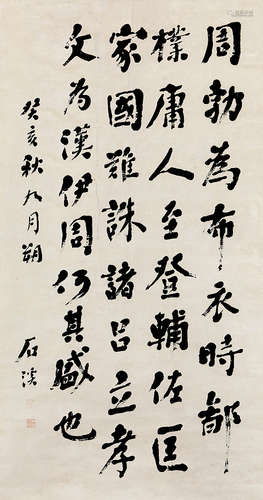 周勃為布衣時鄙
樸庸人至登輔佐匡
家國難誅諸呂立孝
文為漢伊周何其盛也
癸亥秋九月朔
石溪